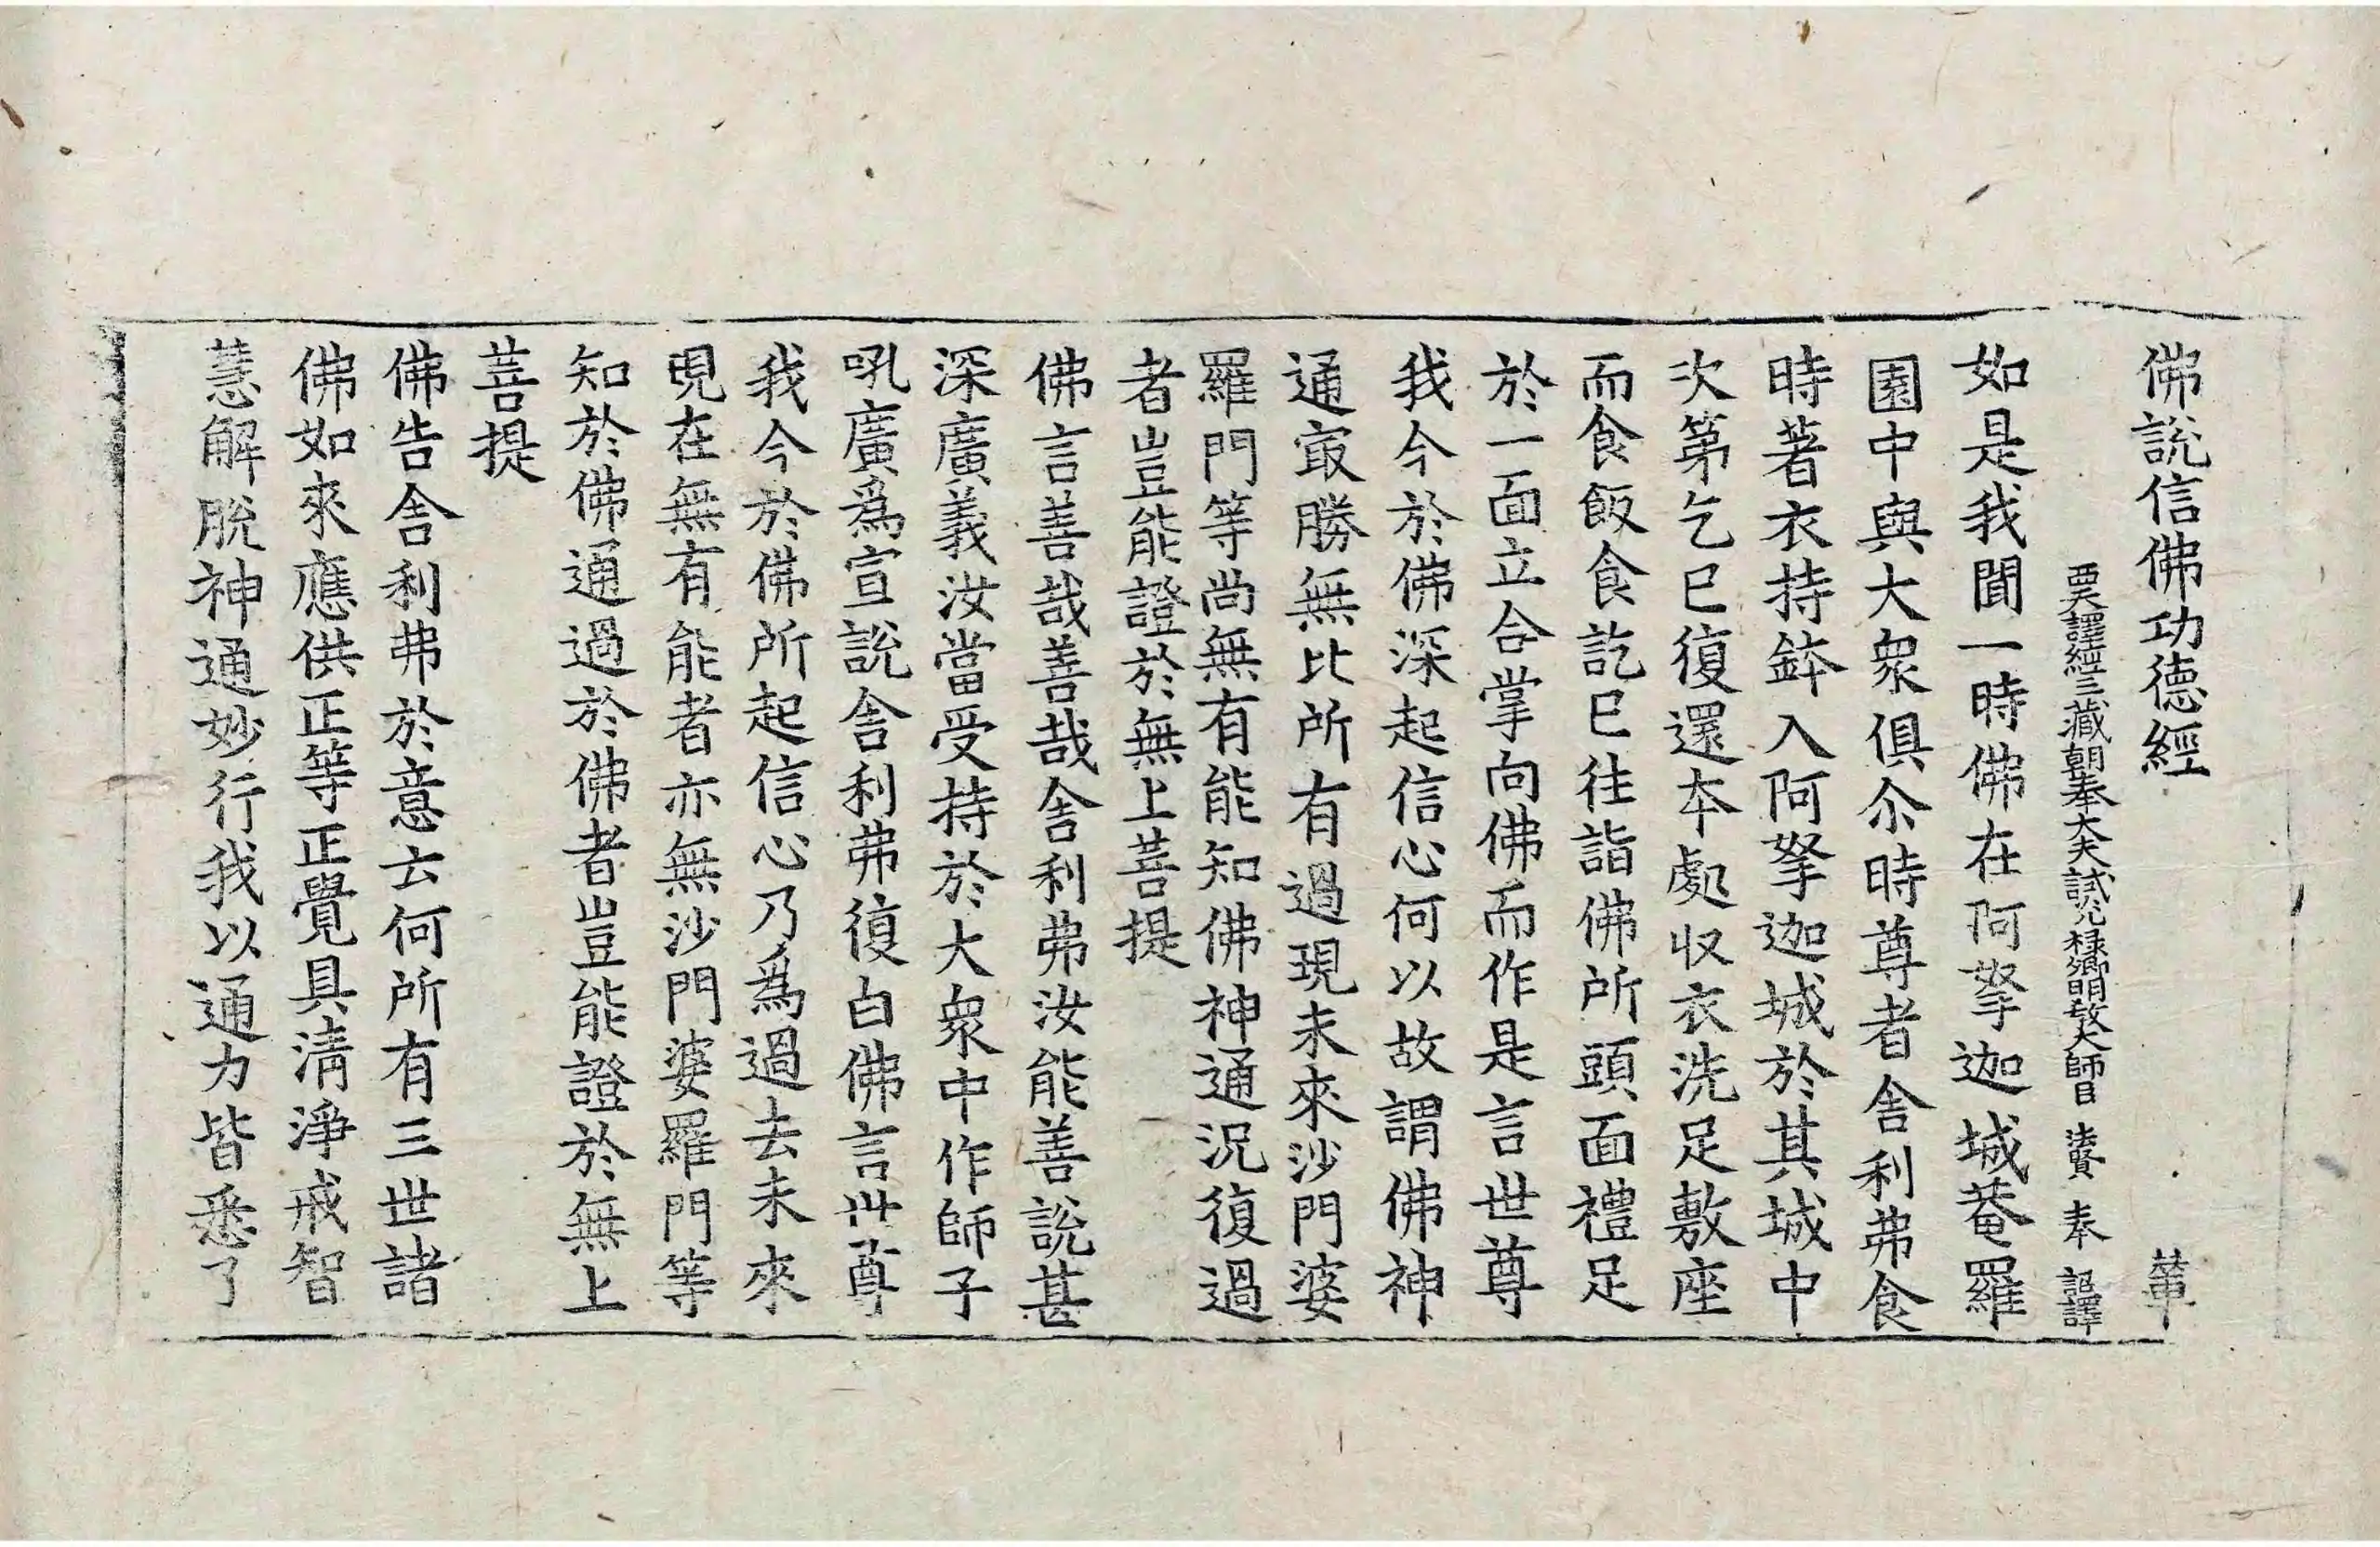 佛說信佛功德經 華
西天譯經三藏朝奉大夫試光祿卿明教大師臣法賢奉 詔譯
如是我聞一時佛在阿拏迦城菴羅
園中與大衆俱尒時尊者舍利弗食
時著衣持鉢入阿拏迦城於其城中
次第乞已復還本處収衣洗足敷座
而食飯食訖已往詣佛所頭面禮足
於一面立合掌向佛而作是言世尊
我今於佛深起信心何以故謂佛神
通㝡勝無比所有過現未來沙門婆
羅門等尚無有能知佛神通況復過
者豈能證於無上菩提
佛言善哉善哉舍利弗汝能善說甚
深廣義汝當受持於大衆中作師子
吼廣爲宣說舍利弗復白佛言世尊
我今於佛所起信心乃爲過去未來
現在無有能者亦無沙門婆羅門等
知於佛通過於佛者豈能證於無上
菩提
佛告舍利弗於意云何所有三世諸
佛如來應供正等正覺具清淨戒智
慧解脫神通妙行我以通力皆悉了